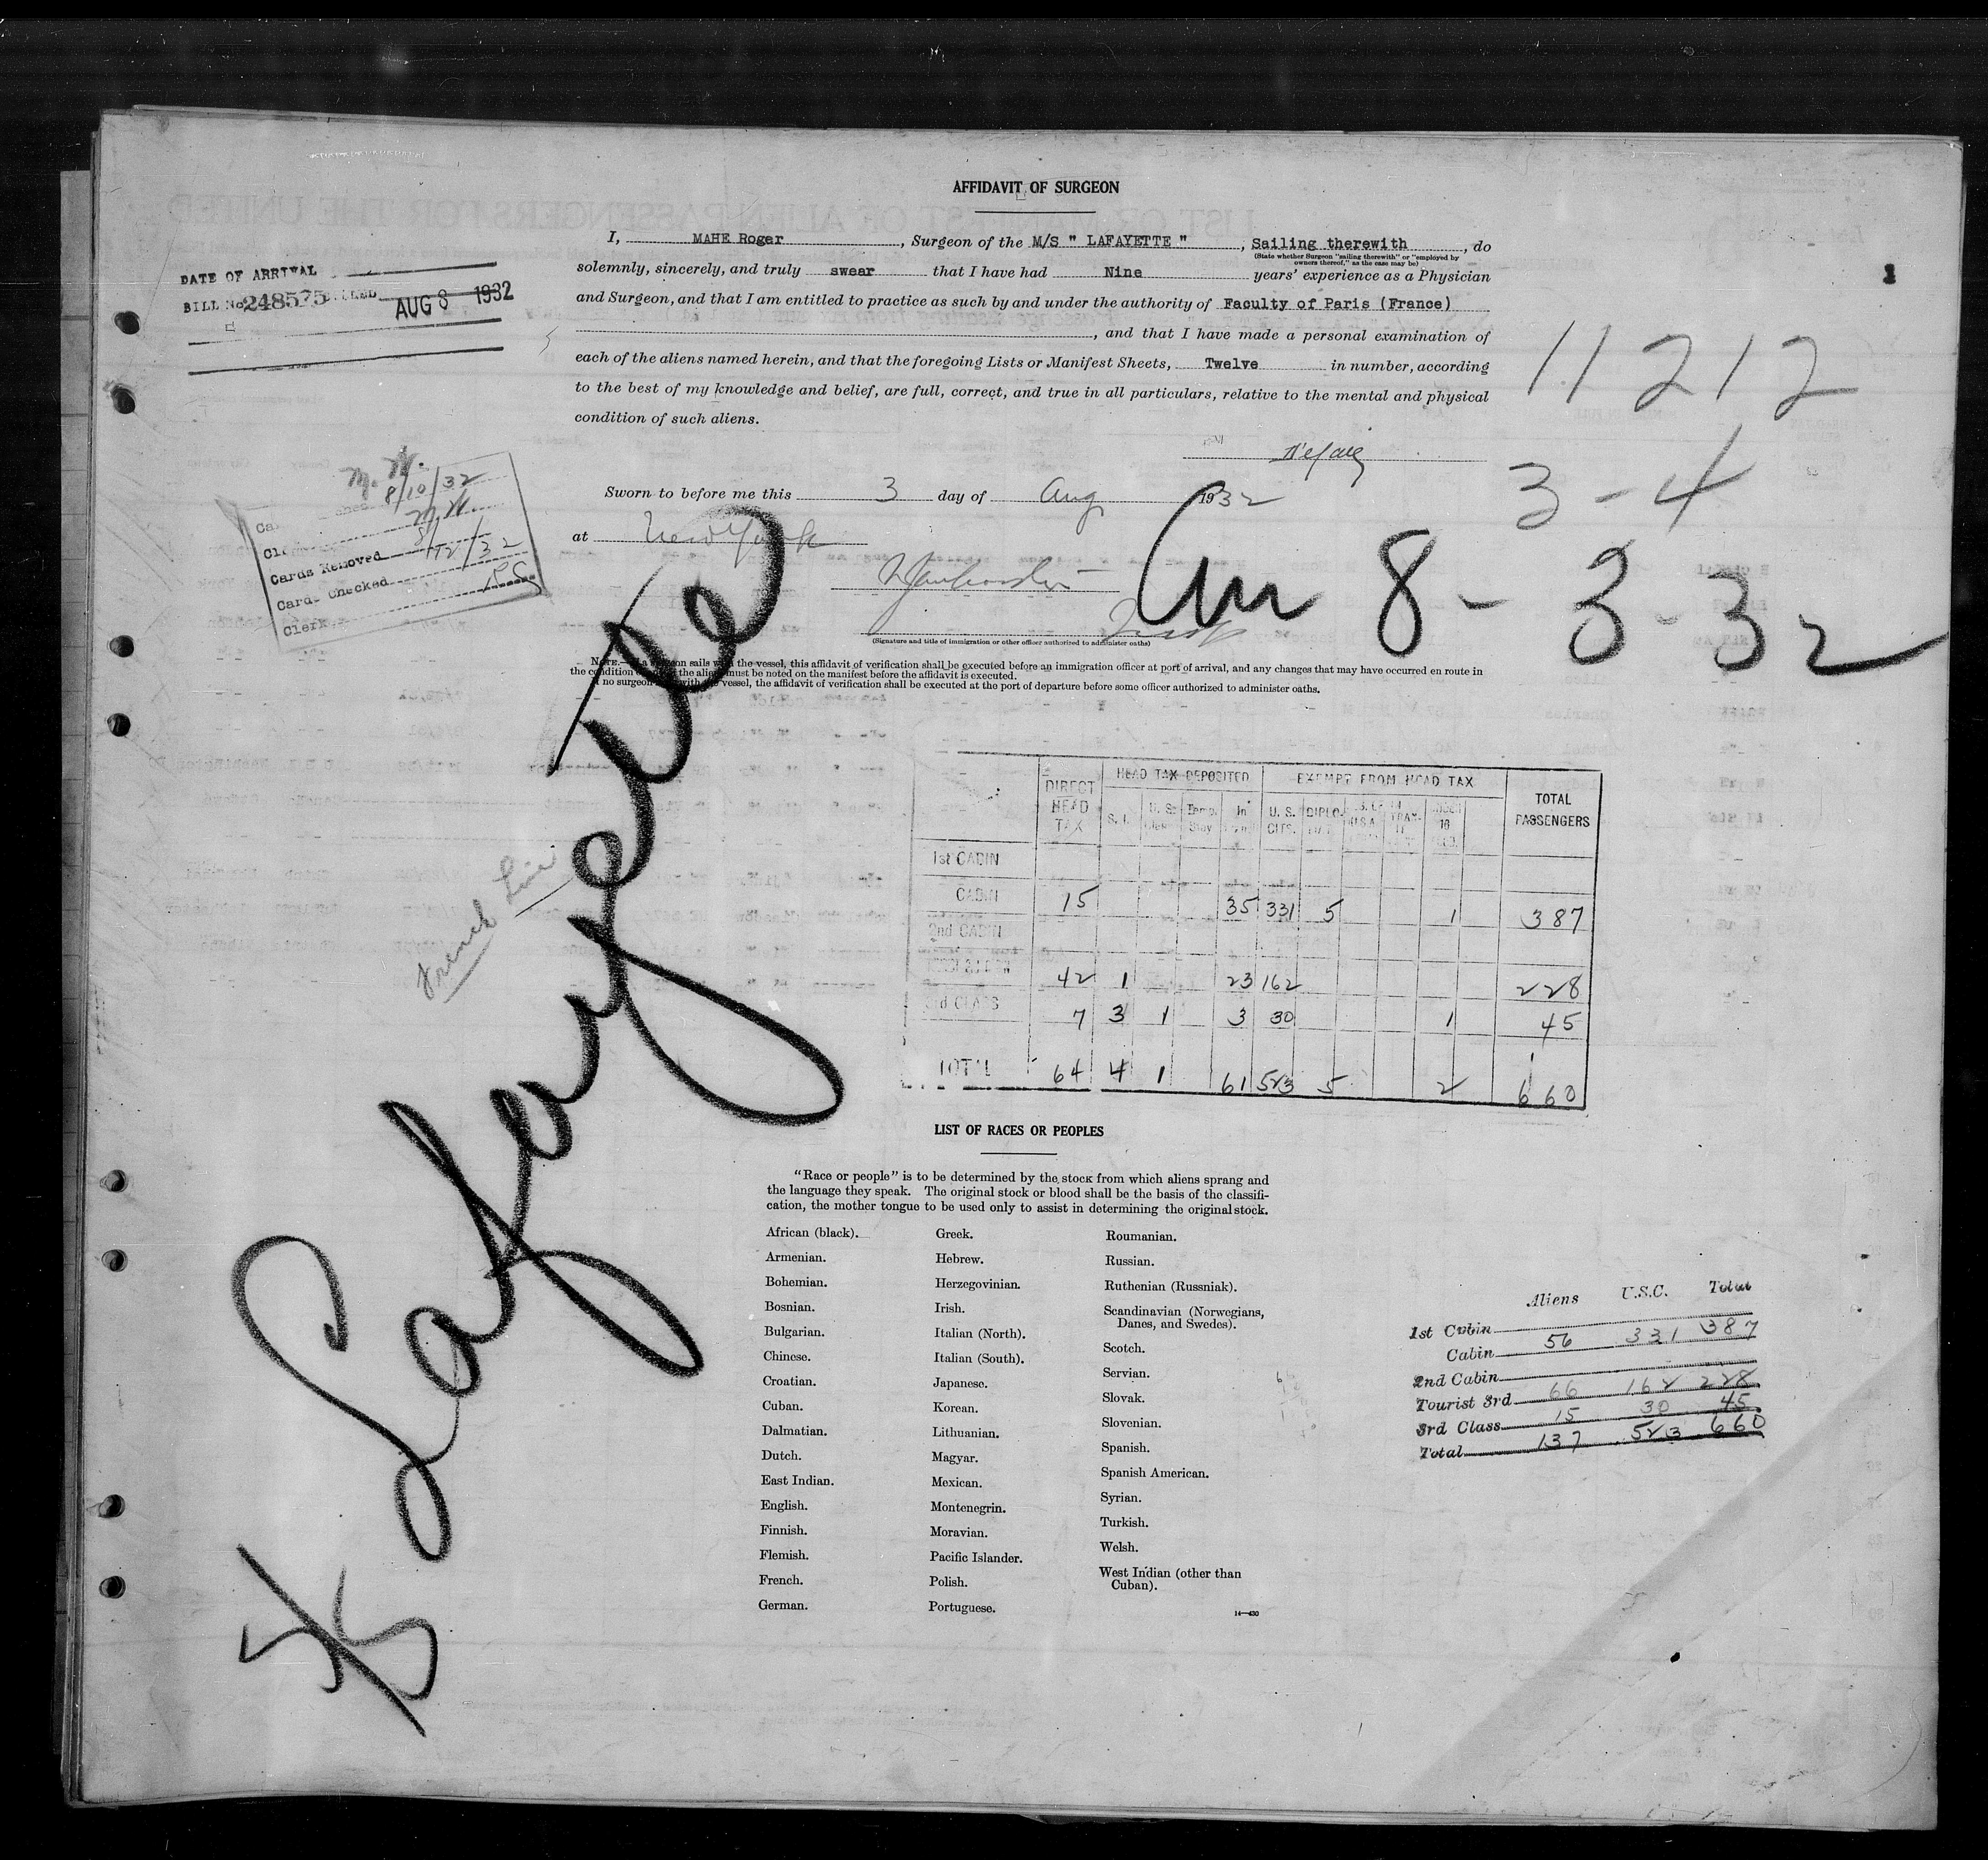 AFFIDAVIT OF SURGEON
I, MAHE Roger, Surgeon of the M/S " LAFAYETTE ", Sailing therewith, do
(State whether Surgeon "sailing therewith" or "employed by
owners thereof," as the case may be)
solemnly, sincerely, and truly swear that I have had Nine years' experience as a Physician
and Surgeon, and that I am entitled to practice as such by and under the authority of Faculty of Paris (France)
, and that I have made a personal examination of
each of the aliens named herein, and that the foregoing Lists or Manifest Sheets, Twelve in number, according
to the best of my knowledge and belief, are full, correct, and true in all particulars, relative to the mental and physical
condition of such aliens.
DATE OF ARRIVAL
BILL No 248575 AUG 8 1932
1
11212
3-4
Sworn to before me this 3 day of Aug 1932
at New York
8-3-32
(Signature and title of immigration or other officer authorized to administer oaths)
M.W.
8/10/32
M.W.
Cards Removed 8/12/32
Cards Checked
Clerk
NOTE.—If a surgeon sails with the vessel, this affidavit of verification shall be executed before an immigration officer at port of arrival, and any changes that may have occurred en route in
the condition of the aliens must be noted on the manifest before the affidavit is executed.
If no surgeon sails with the vessel, the affidavit of verification shall be executed at the port of departure before some officer authorized to administer oaths.
Lafayette
French Line
DIRECT HEAD TAX HEAD TAX DEPOSITED EXEMPT FROM HEAD TAX TOTAL PASSENGERS
S. I. U. S. Temp. Stay In U. S. CITS. DIPLO. 16
1st CABIN
CABIN 15 35 331 5 1 387
2nd CABIN
42 1 23 162 228
3rd CLASS 7 3 1 3 30 1 45
TOTAL 64 4 1 61 523 5 2 660
LIST OF RACES OR PEOPLES
"Race or people" is to be determined by the stock from which aliens sprang and
the language they speak. The original stock or blood shall be the basis of the classifi-
cation, the mother tongue to be used only to assist in determining the original stock.
African (black).
Armenian.
Bohemian.
Bosnian.
Bulgarian.
Chinese.
Croatian.
Cuban.
Dalmatian.
Dutch.
East Indian.
English.
Finnish.
Flemish.
French.
German.
Greek.
Hebrew.
Herzegovinian.
Irish.
Italian (North).
Italian (South).
Japanese.
Korean.
Lithuanian.
Magyar.
Mexican.
Montenegrin.
Moravian.
Pacific Islander.
Polish.
Portuguese.
Roumanian.
Russian.
Ruthenian (Russniak).
Scandinavian (Norwegians,
Danes, and Swedes).
Scotch.
Servian.
Slovak.
Slovenian.
Spanish.
Spanish American.
Syrian.
Turkish.
Welsh.
West Indian (other than
Cuban).
14—430
Aliens U.S.C. Total
1st Cabin
Cabin 56 331 387
2nd Cabin
Tourist 3rd 66 162 228
3rd Class 15 30 45
Total 137 523 660